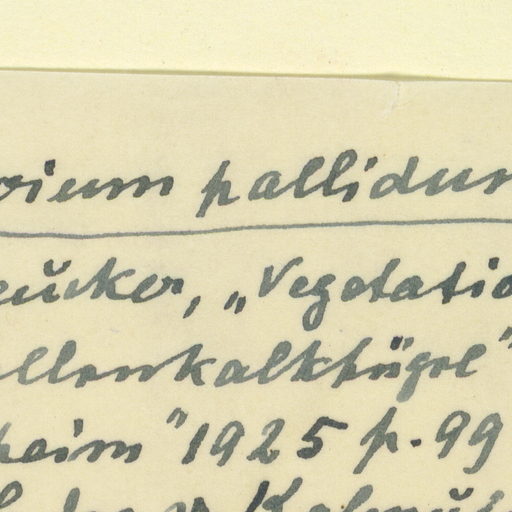 oium pallidum
eücker, „Vegetatio
ellenkalkhügel"
heim" 1925 p. 99